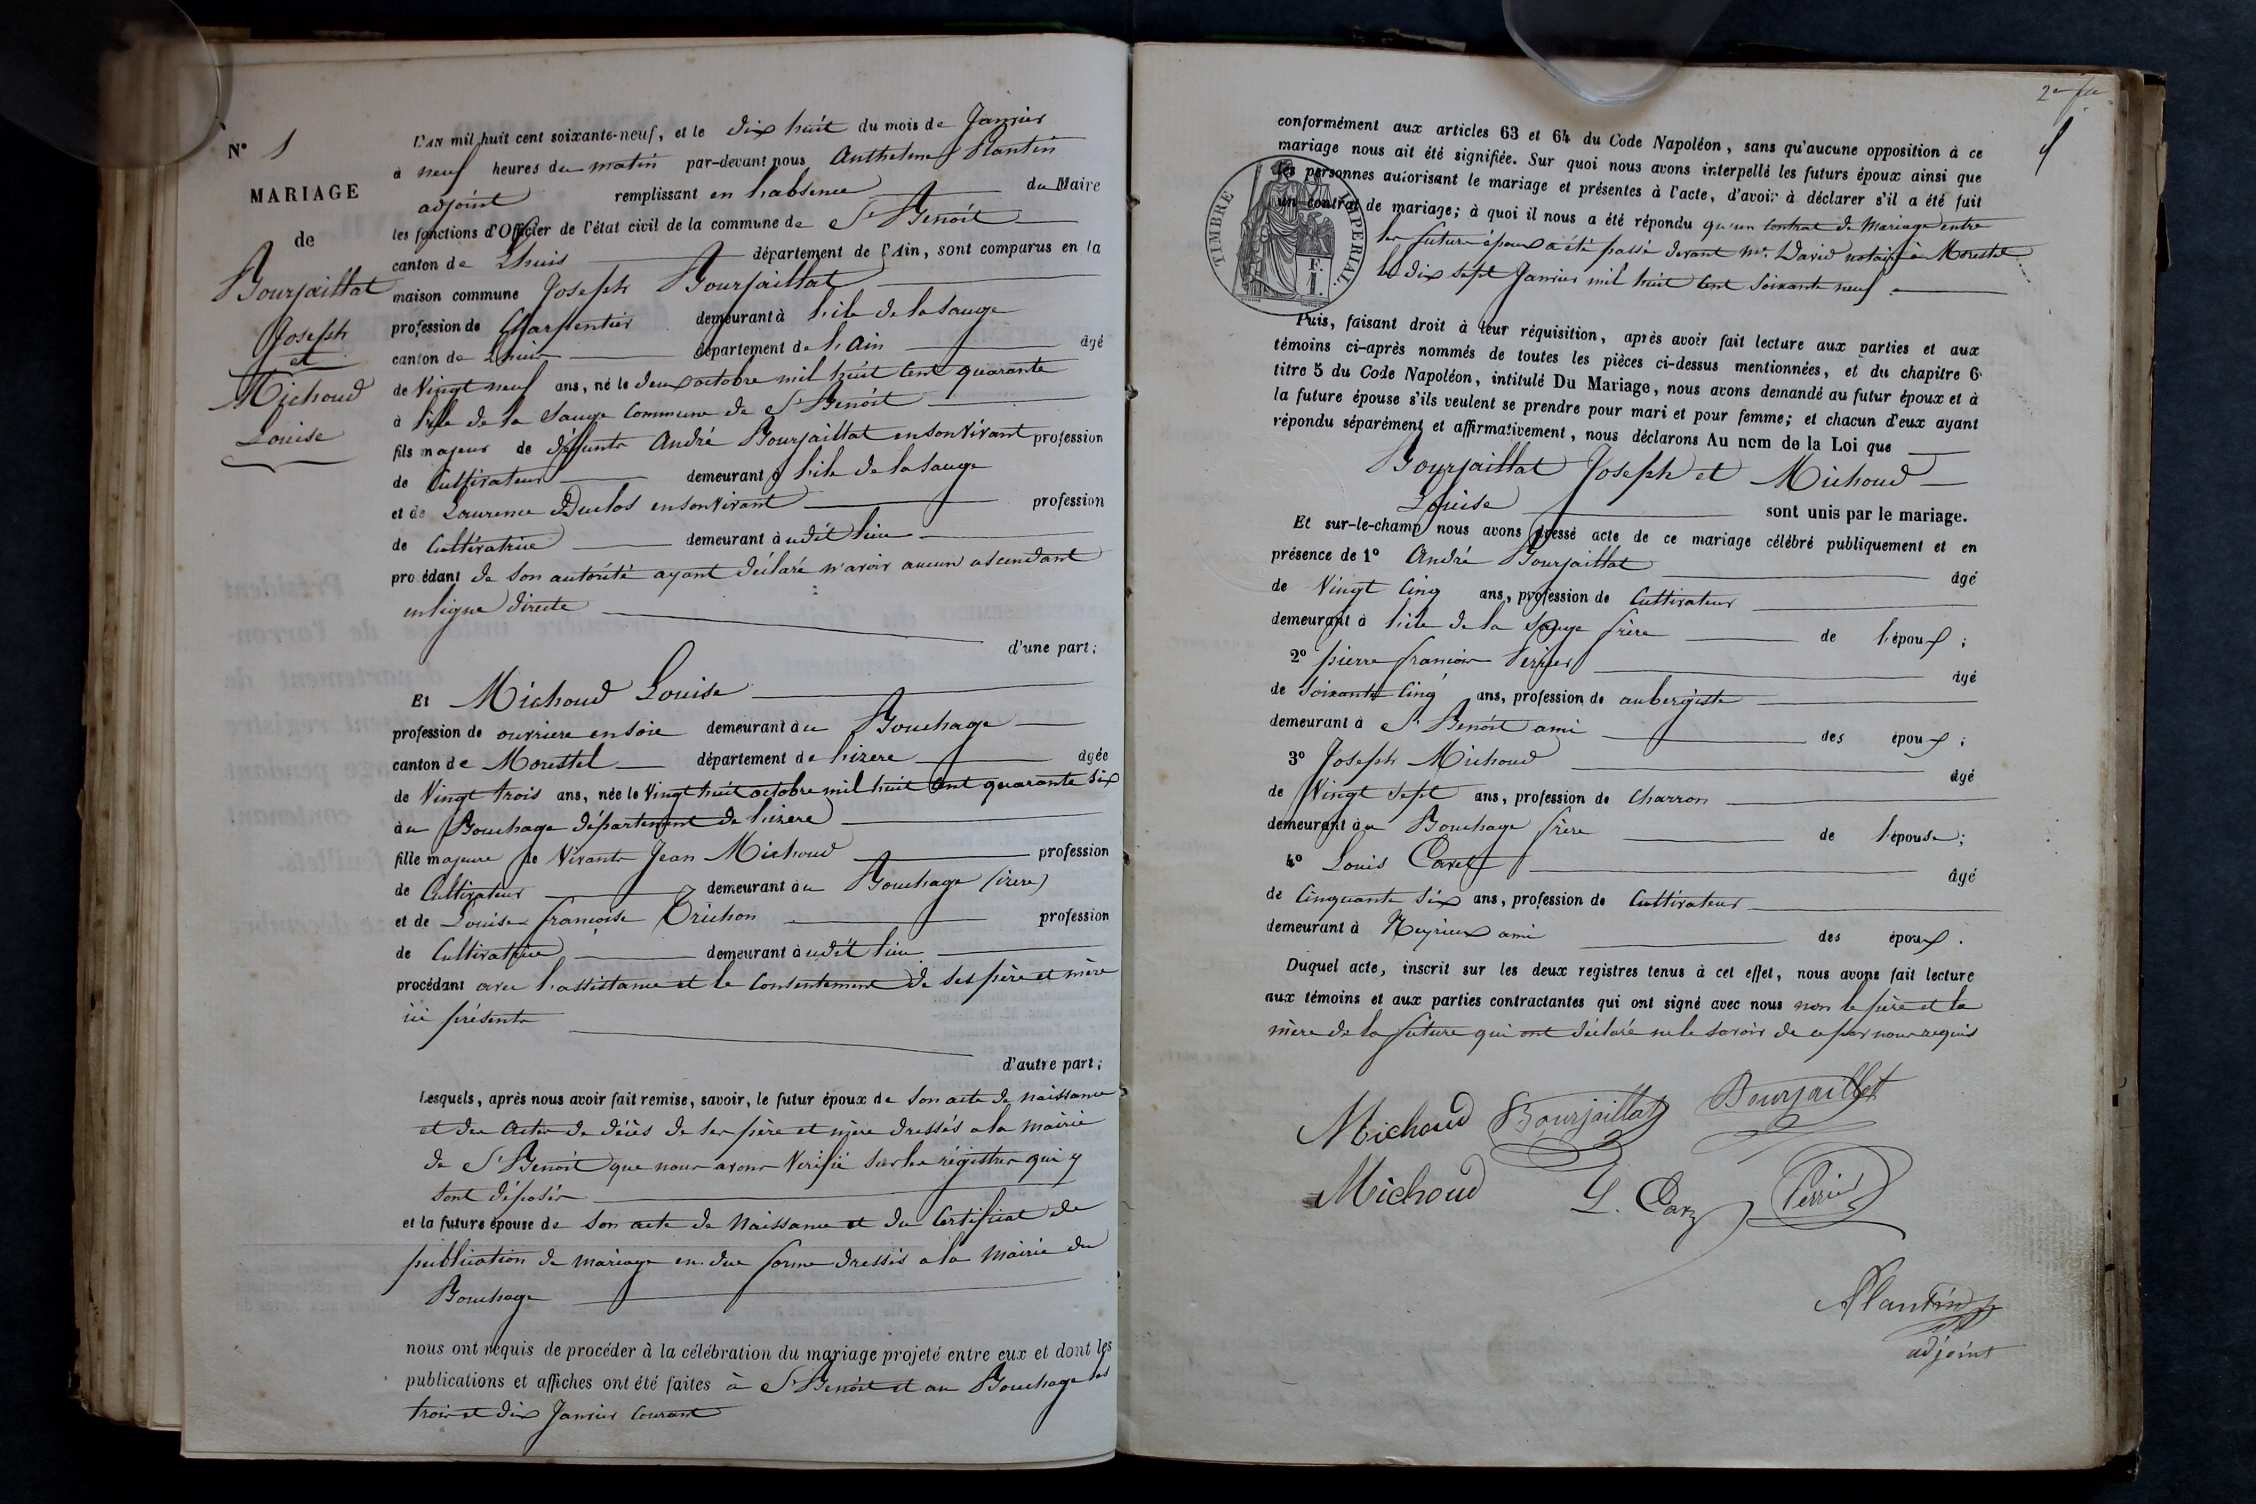 N° 1
MARIAGE
de
Bourjaillat
Joseph
et
Michoud
Louise
L'AN mil huit cent soixante-neuf, et le dix huit du mois de Janvier
à neuf heures du matin par-devant nous Anthelme Plantin
adjoint remplissant en l'absence du Maire
les fonctions d'Officier de l'état civil de la commune de St Benoit
canton de Lhuis département de l'Ain, sont comparus en la
maison commune Joseph Bourjaillat
profession de Charpentier demeurant à l'ile de la sauge
canton de Lhuis département de l'Ain âgé
de Vingt neuf ans, né le deux octobre mil huit cent quarante
à l'ile de la Sauge Commune de St Benoit
fils majeur de défunts André Bourjaillat en son vivant profession
de Cultivateur demeurant à l'ile de la Sauge
et de Laurence Duclos en son vivant profession
de Cultivatrice demeurant à udit lieu
procédant de son autorité ayant déclaré n'avoir aucun ascendant
en ligne directe
d'une part;
Et Michoud Louise
profession de ouvriere en soie demeurant au Bouchage
canton de Morestel département de l'izere âgée
de Vingt trois ans, née le Vingt huit octobre mil huit cent quarante six
au Bouchage département de l'izere
fille majeure de Vivants Jean Michoud profession
de Cultivateur demeurant au Bouchage (izere)
et de Louise françoise Trichon profession
de Cultivatrice demeurant à udit lieu
procédant avec l'assistance et le Consentement de ses père et mère
ici présents
d'autre part;
Lesquels, après nous avoir fait remise, savoir, le futur époux de son acte de naissance
et des actes de décès de ses père et mère dressés a la mairie
de St Benoit que nous avons Vérifié sur les régistres qui y
sont déposés
et la future épouse de son acte de Naissance et du Certificat de
publication de mariage en due forme dressés a la mairie du
Bouchage
nous ont requis de procéder à la célébration du mariage projeté entre eux et dont les
publications et affiches ont été faites à St Benoit et au Bouchage les
trois et dix Janvier Courant
2e
conformément aux articles 63 et 64 du Code Napoléon, sans qu'aucune opposition à ce
mariage nous ait été signifiée. Sur quoi nous avons interpellé les futurs époux ainsi que
les personnes autorisant le mariage et présentes à l'acte, d'avoir à déclarer s'il a été fait
un contrat de mariage; à quoi il nous a été répondu qu'un Contrat de Mariage entre
les futurs époux a été passé devant Me David notaire à Morestel
le dix sept Janvier mil huit Cent Soixante neuf.
TIMBRE IMPERIAL
F.
1.
Puis, faisant droit à leur réquisition, après avoir fait lecture aux parties et aux
témoins ci-après nommés de toutes les pièces ci-dessus mentionnées, et du chapitre 6
titre 5 du Code Napoléon, intitulé Du Mariage, nous avons demandé au futur époux et à
la future épouse s'ils veulent se prendre pour mari et pour femme; et chacun d'eux ayant
répondu séparément et affirmativement, nous déclarons Au nom de la Loi que
Bourjaillat Joseph et Michoud
Louise sont unis par le mariage.
Et sur-le-champ nous avons dressé acte de ce mariage célébré publiquement et en
présence de 1° André Bourjaillat âgé
de Vingt Cinq ans, profession de Cultivateur
demeurant à l'ile de la Sauge frère de l'époux;
2° pierre françois Perrier âgé
de Soixante Cinq ans, profession de aubergiste
demeurant à St Benoit ami des époux;
3° Joseph Michoud âgé
de Vingt Sept ans, profession de Charron
demeurant au Bouchage frère de l'épouse;
4° Louis Carel âgé
de Cinquante Six ans, profession de Cultivateur
demeurant à Neyrieux ami des époux.
Duquel acte, inscrit sur les deux registres tenus à cet effet, nous avons fait lecture
aux témoins et aux parties contractantes qui ont signé avec nous non le père et la
mère de la future qui ont déclaré ne le savoir de ce par nous requis
Michoud Bourjaillat Bourjaillat
Michoud L. Carel Perrier
Plantin
adjoint